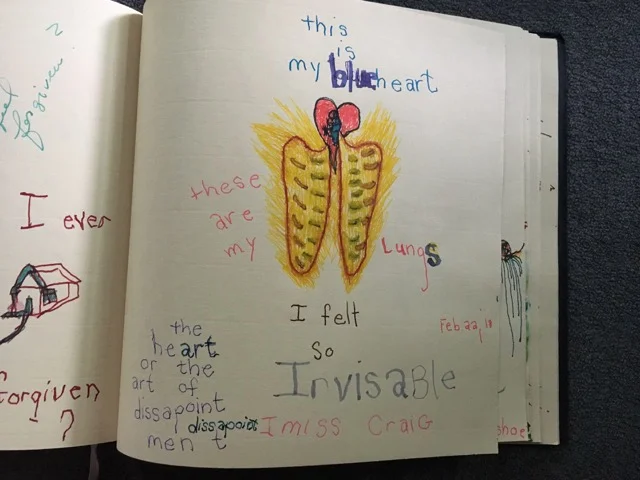 forgiven?
I ever
forgiven
?
this
is
my blue heart
these
are
my
Lungs
I felt
so
Invisable
Feb. 22, 18
the
heart
or the
art of
dissapoint
dissapoint
men t
I miss Craig
shoe